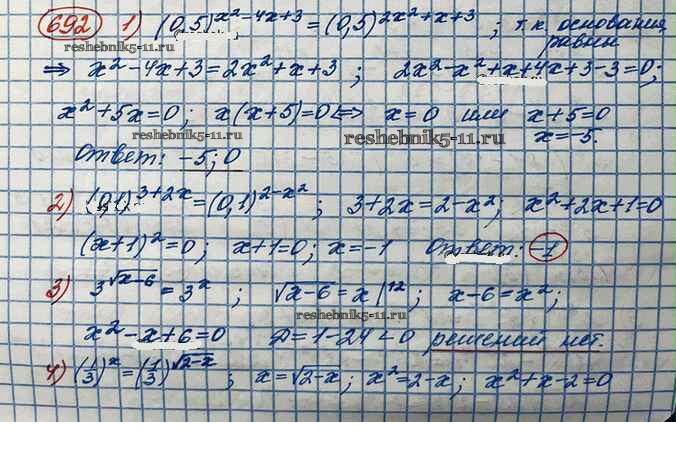 692 1) (0,5)^(x²-4x+3) = (0,5)^(2x²+x+3) ; т.к. основания
равны
reshebnik5-11.ru
⇒ x²-4x+3=2x²+x+3 ; 2x²-x²+x+4x+3-3=0;
x²+5x=0; x(x+5)=0 ⟺ x=0 или x+5=0
reshebnik5-11.ru reshebnik5-11.ru
x=-5.
Ответ: -5; 0
2) (0,1)^(3+2x) = (0,1)^(2-x²) ; 3+2x=2-x²; x²+2x+1=0
(x+1)²=0; x+1=0; x=-1 Ответ: -1
3) 3^(√x-6) = 3^x ; √x-6 = x |↑²; x-6=x²;
reshebnik5-11.ru
x²-x+6=0 D=1-24<0 решений нет.
4) (1/3)^x = (1/3)^(√2-x) ; x=√2-x; x²=2-x; x²+x-2=0
reshebnik5-11.ru